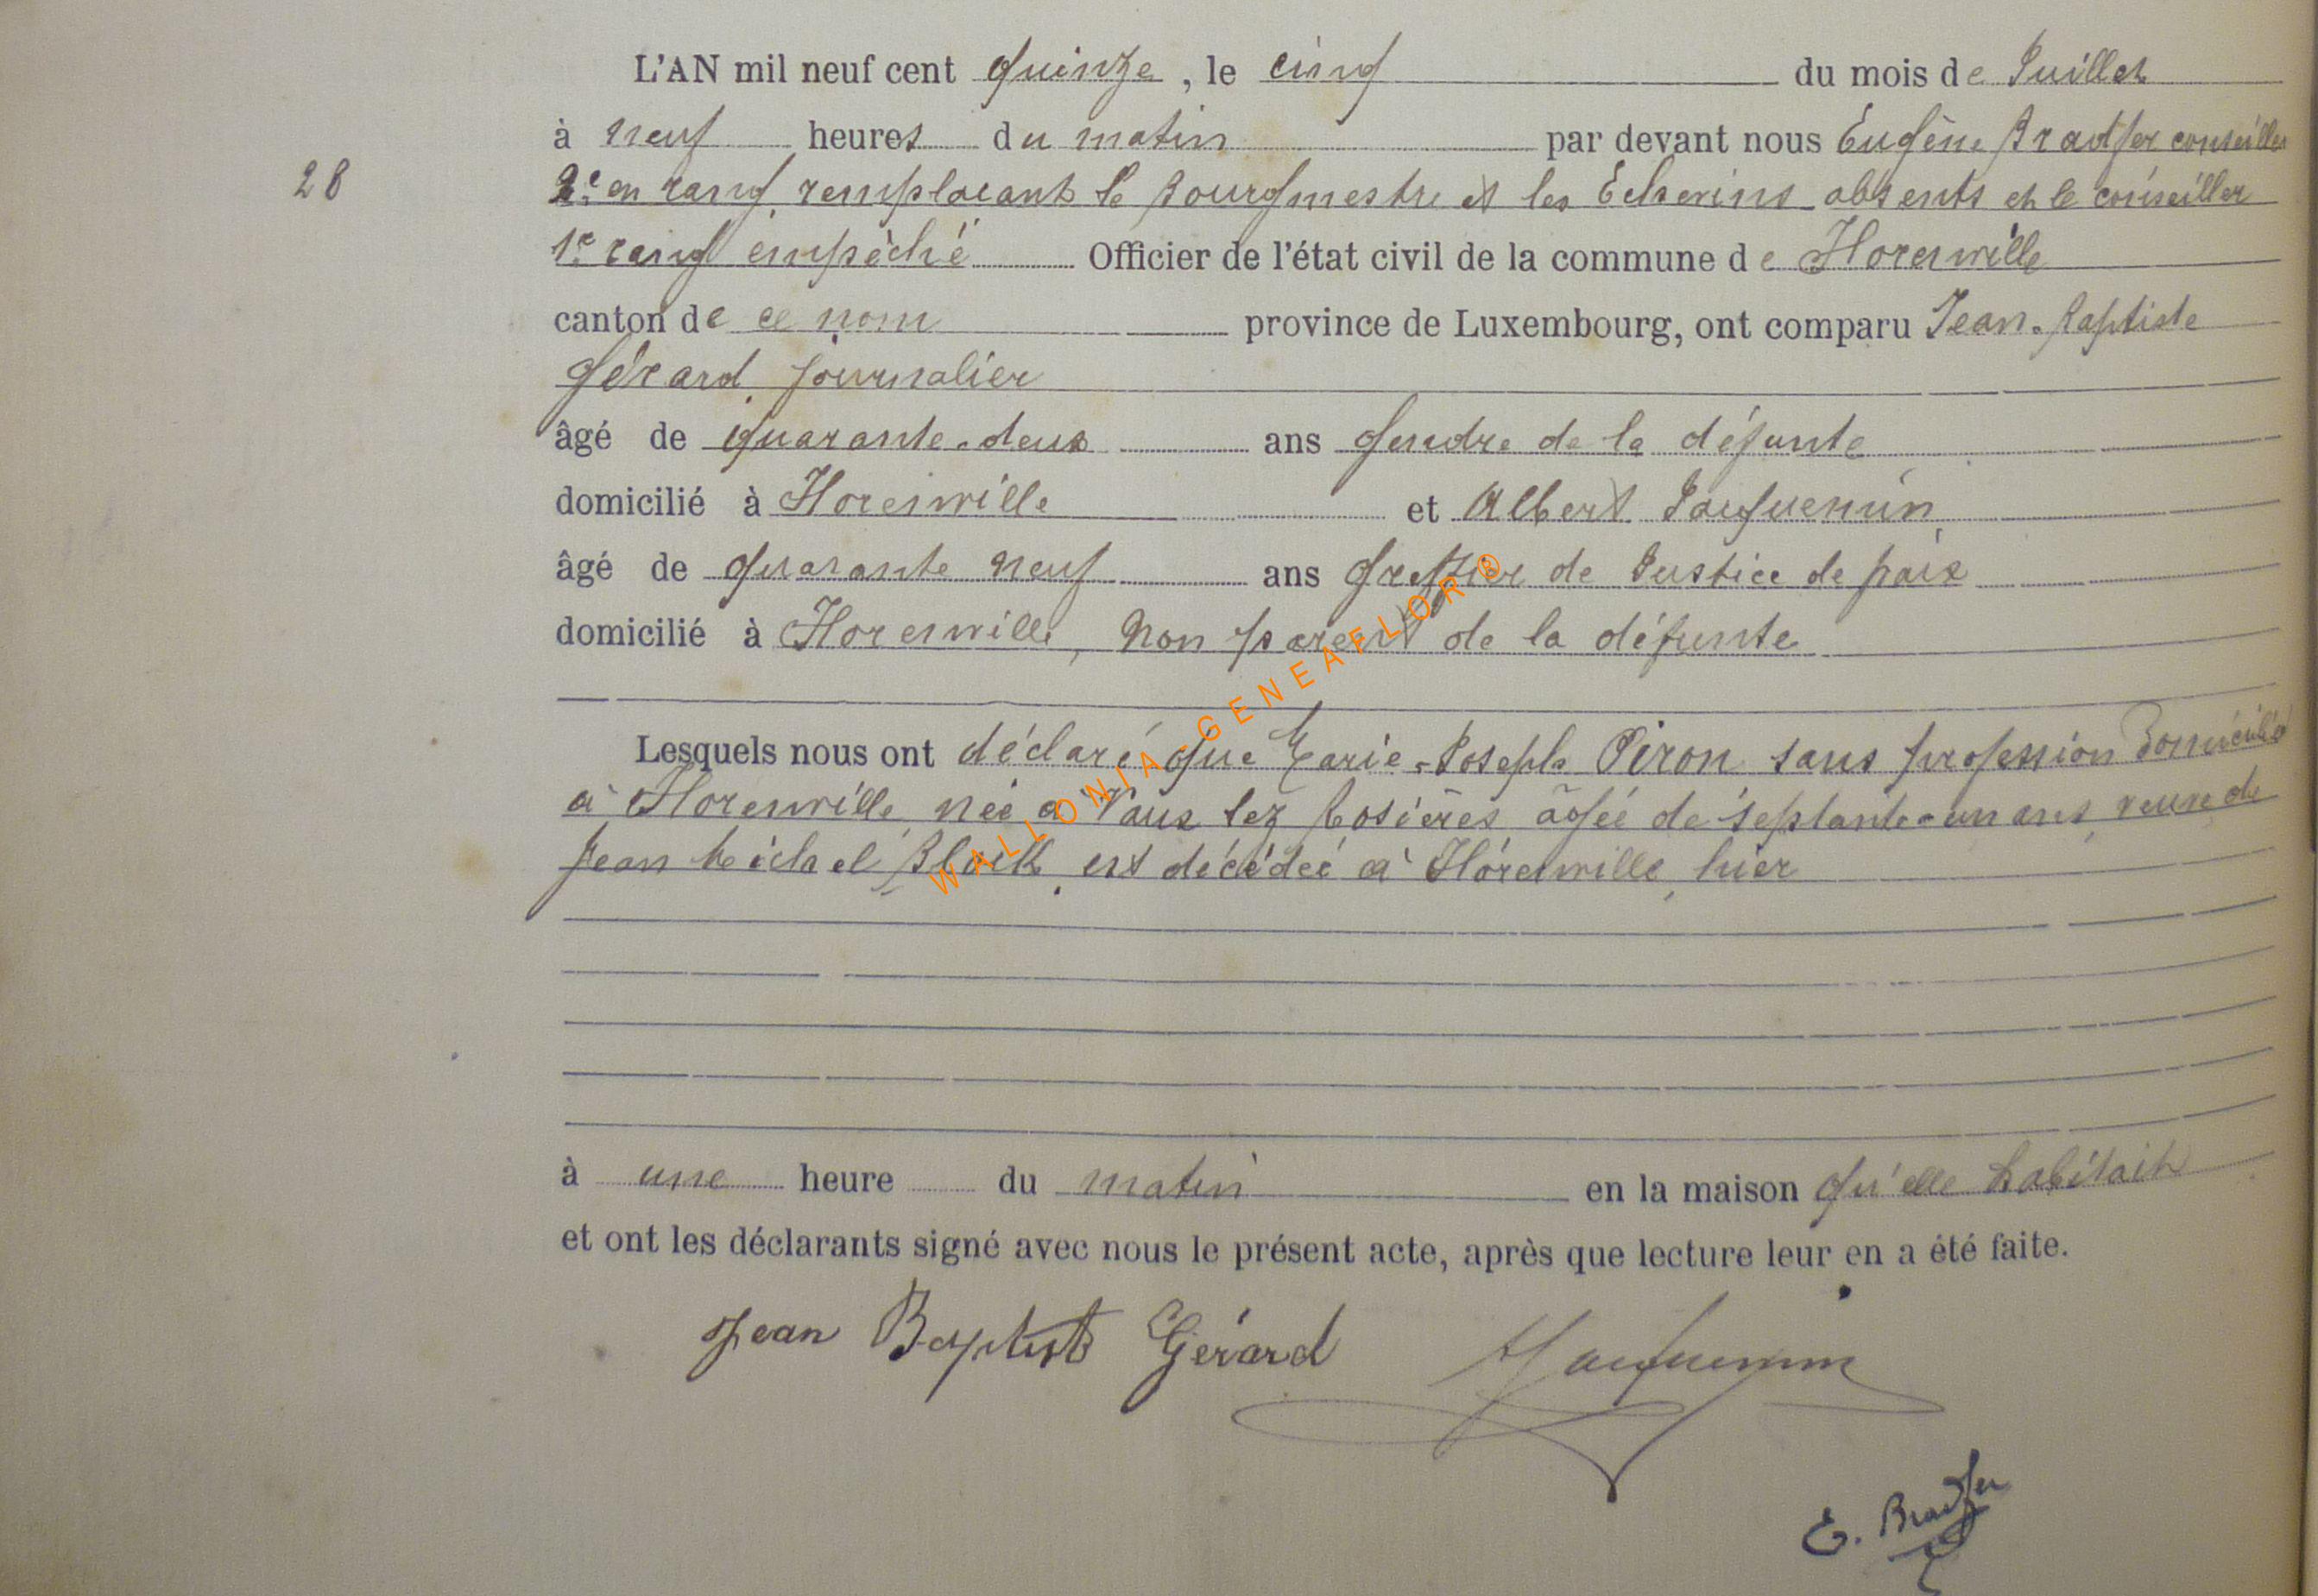 L'AN mil neuf cent quinze, le cinq du mois de Juillet
à neuf heures du matin par devant nous Eugène Bradfer conseiller
28
2e en rang remplaçant le Bourgmestre et les Echevins absents et le conseiller
1e rang empêché Officier de l'état civil de la commune de Florenville
canton de ce nom province de Luxembourg, ont comparu Jean-Baptiste
Gérard, journalier
âgé de quarante-deux ans gendre de la défunte
domicilié à Florenville et Albert Jacquemin
âgé de quarante neuf ans greffier de Justice de paix
domicilié à Florenville, non parent de la défunte
Lesquels nous ont déclaré que Marie-Joseph Piron sans profession domiciliée
à Florenville née à Vaux lez Rosières âgée de septante-un ans, veuve de
Jean Michel Block, est décédée à Florenville, hier
à une heure du matin en la maison qu'elle habitait
et ont les déclarants signé avec nous le présent acte, après que lecture leur en a été faite.
Jean Baptist Gérard Jacquemin
E. Bradfer
WALLONIA-GENEAFLOR®